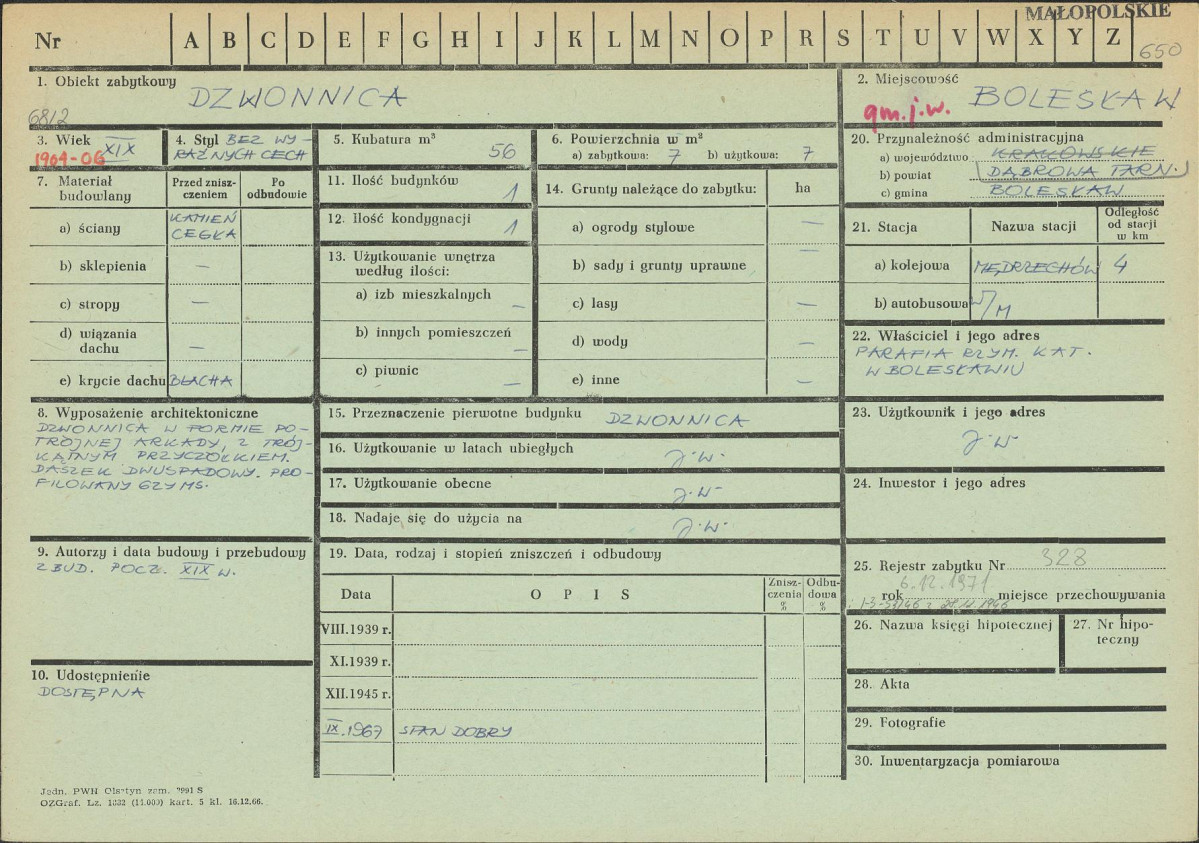 MAŁOPOLSKIE
Nr A B C D E F G H I J K L M N O P R S T U V W X Y Z
650
1. Obiekt zabytkowy
DZWONNICA
6812
2. Miejscowość
gm. j.w. BOLESŁAW
3. Wiek XIX
1904-06
4. Styl BEZ WY-
RAŹNYCH CECH
5. Kubatura m³
56
6. Powierzchnia w m²
a) zabytkowa: 7 b) użytkowa: 7
20. Przynależność administracyjna
a) województwo KRAKOWSKIE
b) powiat DĄBROWA TARN.
c) gmina BOLESŁAW
7. Materiał
budowlany
Przed znisz-
czeniem
Po
odbudowie
a) ściany KAMIEŃ
CEGŁA
b) sklepienia –
c) stropy –
d) wiązania
dachu –
e) krycie dachu BLACHA
11. Ilość budynków 1
12. Ilość kondygnacji 1
13. Użytkowanie wnętrza
według ilości:
a) izb mieszkalnych –
b) innych pomieszczeń –
c) piwnic –
14. Grunty należące do zabytku: ha
a) ogrody stylowe –
b) sady i grunty uprawne –
c) lasy –
d) wody –
e) inne –
21. Stacja Nazwa stacji Odległość
od stacji
w km
a) kolejowa MĘDRZECHÓW 4
b) autobusowa W/M
22. Właściciel i jego adres
PARAFIA RZYM. KAT.
W BOLESŁAWIU
8. Wyposażenie architektoniczne
DZWONNICA W FORMIE PO-
TRÓJNEJ ARKADY, Z TRÓJ-
KĄTNYM PRZYCZÓŁKIEM.
DASZEK DWUSPADOWY. PRO-
FILOWANY GZYMS.
15. Przeznaczenie pierwotne budynku DZWONNICA
16. Użytkowanie w latach ubiegłych J.W.
17. Użytkowanie obecne J.W.
18. Nadaje się do użycia na J.W.
23. Użytkownik i jego adres
J.W.
24. Inwestor i jego adres
9. Autorzy i data budowy i przebudowy
ZBUD. POCZ. XIX W.
19. Data, rodzaj i stopień zniszczeń i odbudowy
Data O P I S Znisz-
czenia
%
Odbu-
dowa
%
VIII.1939 r.
XI.1939 r.
XII.1945 r.
IX.1967 STAN DOBRY
25. Rejestr zabytku Nr 328
6.12.1971
rok miejsce przechowywania
26. Nazwa księgi hipotecznej
27. Nr hipo-
teczny
10. Udostępnienie
DOSTĘPNA
28. Akta
29. Fotografie
30. Inwentaryzacja pomiarowa
Jedn. PWH Olsztyn zam. 2991 S
OZGraf. Lz. 1832 (11.000) kart. 5 kl. 16.12.66.